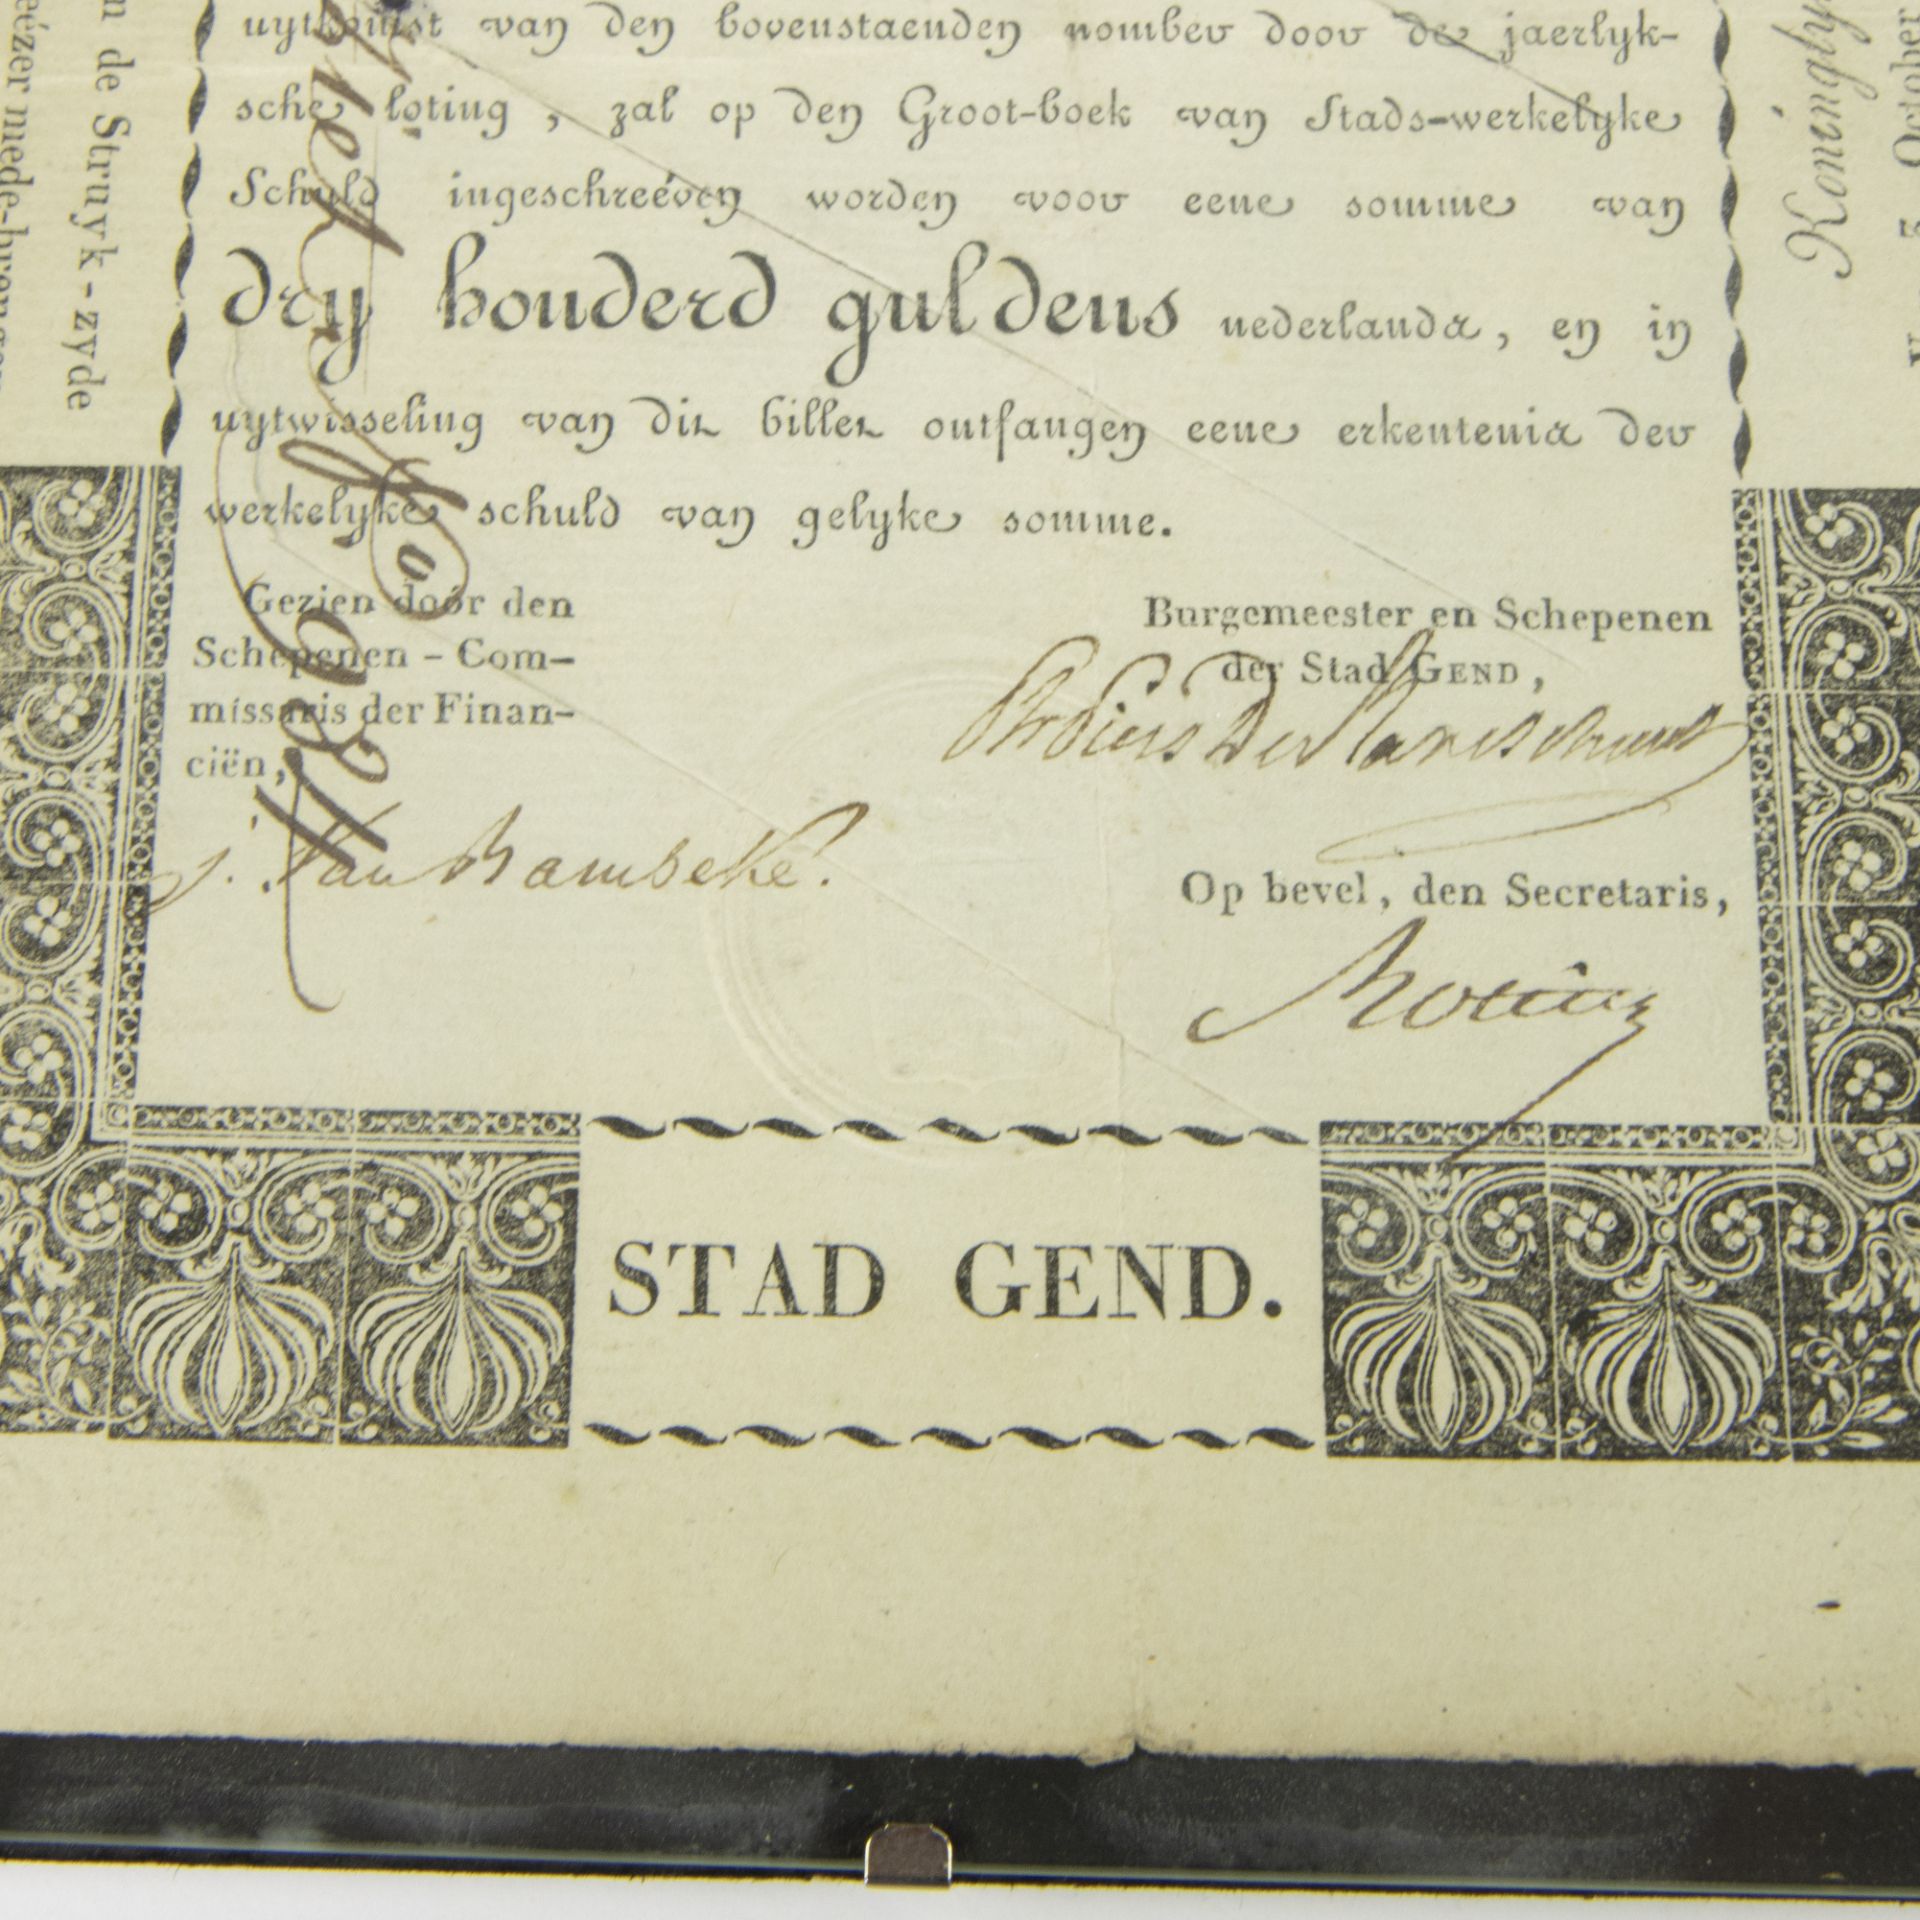 uytkomst van den bovenstaenden nomber door de jaerlyk-
sche loting, zal op den Groot-boek van Stads-werkelyke
Schuld ingeschreéven worden voor eene somme van
dry honderd guldens nederlands, en in
uytwisseling van dit billet ontfangen eene erkentenis der
werkelyke schuld van gelyke somme.
Gezien door den
Schepenen - Com-
missaris der Finan-
ciën,
Burgemeester en Schepenen
der Stad GEND,
J. Van Bambeke.
Op bevel, den Secretaris,
STAD GEND.
de Struyk-zyde
Koningly
October
3